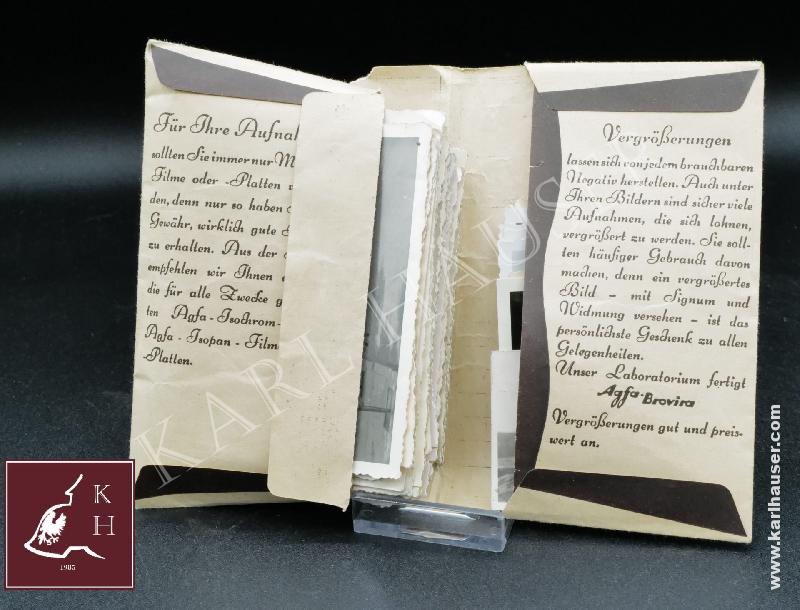 Für Ihre Aufnah
sollten Sie immer nur M
Filme oder -Platten
den, denn nur so haben
Gewähr, wirklich gute
zu erhalten. Aus der
empfehlen wir Ihnen
die für alle Zwecke g
ten Agfa-Isochrom-
Agfa-Isopan-Film
-Platten.
Vergrößerungen
lassen sich von jedem brauchbaren
Negativ herstellen. Auch unter
Ihren Bildern sind sicher viele
Aufnahmen, die sich lohnen,
vergrößert zu werden. Sie soll-
ten häufiger Gebrauch davon
machen, denn ein vergrößertes
Bild – mit Signum und
Widmung versehen – ist das
persönlichste Geschenk zu allen
Gelegenheiten.
Unser Laboratorium fertigt
Agfa-Brovira
Vergrößerungen gut und preis-
wert an.
KARL HAUSER
K
H
1985
www.karlhauser.com